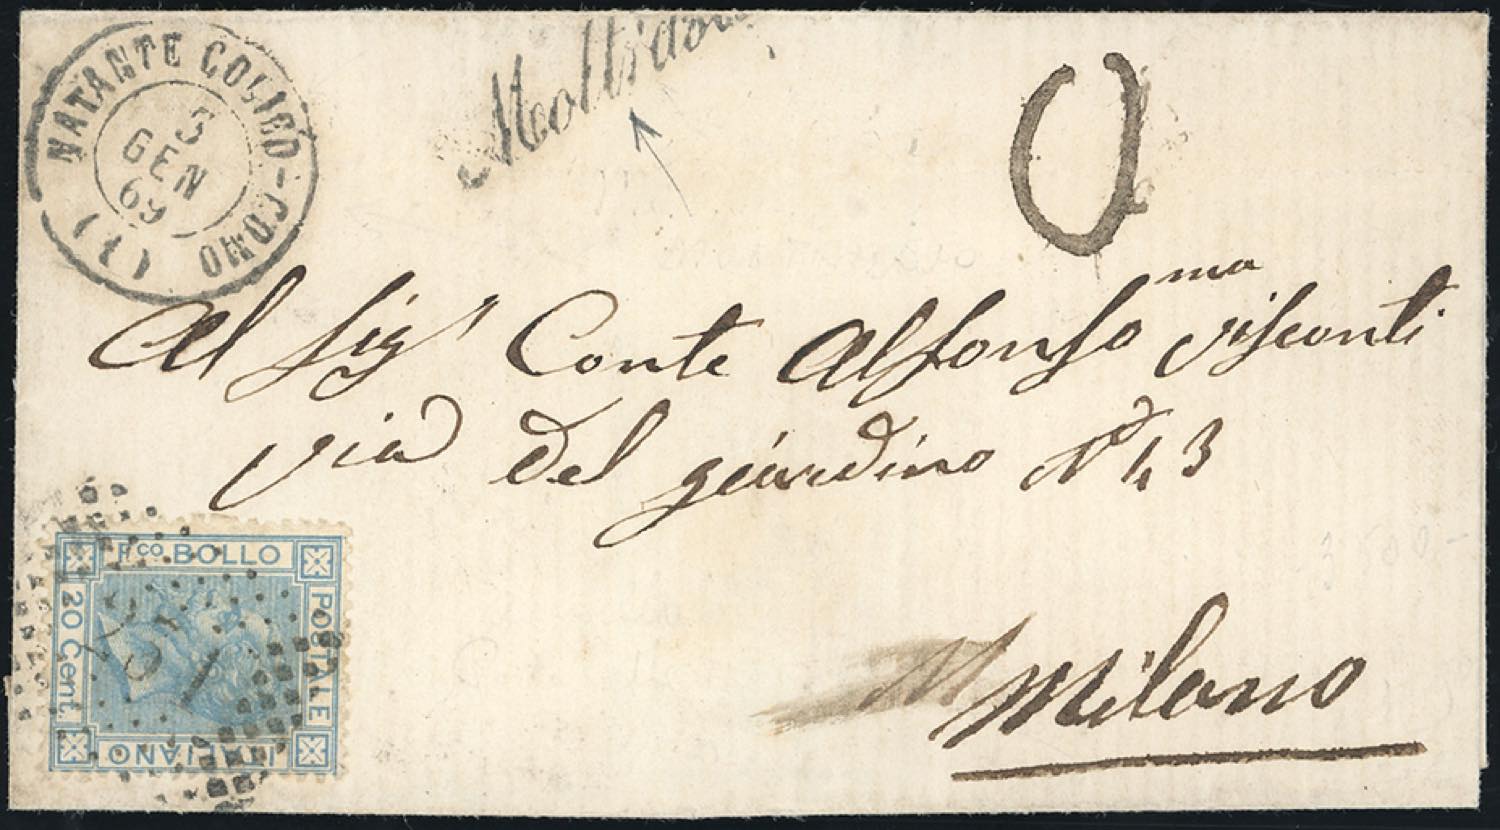 NATANTE COLICO-COMO
5
GEN
69
(1)
Al Sigr Conte Alfonso ma Visconti
via del giardino No 43
Milano
Fco BOLLO
POSTALE
ITALIANO
20 Cent.